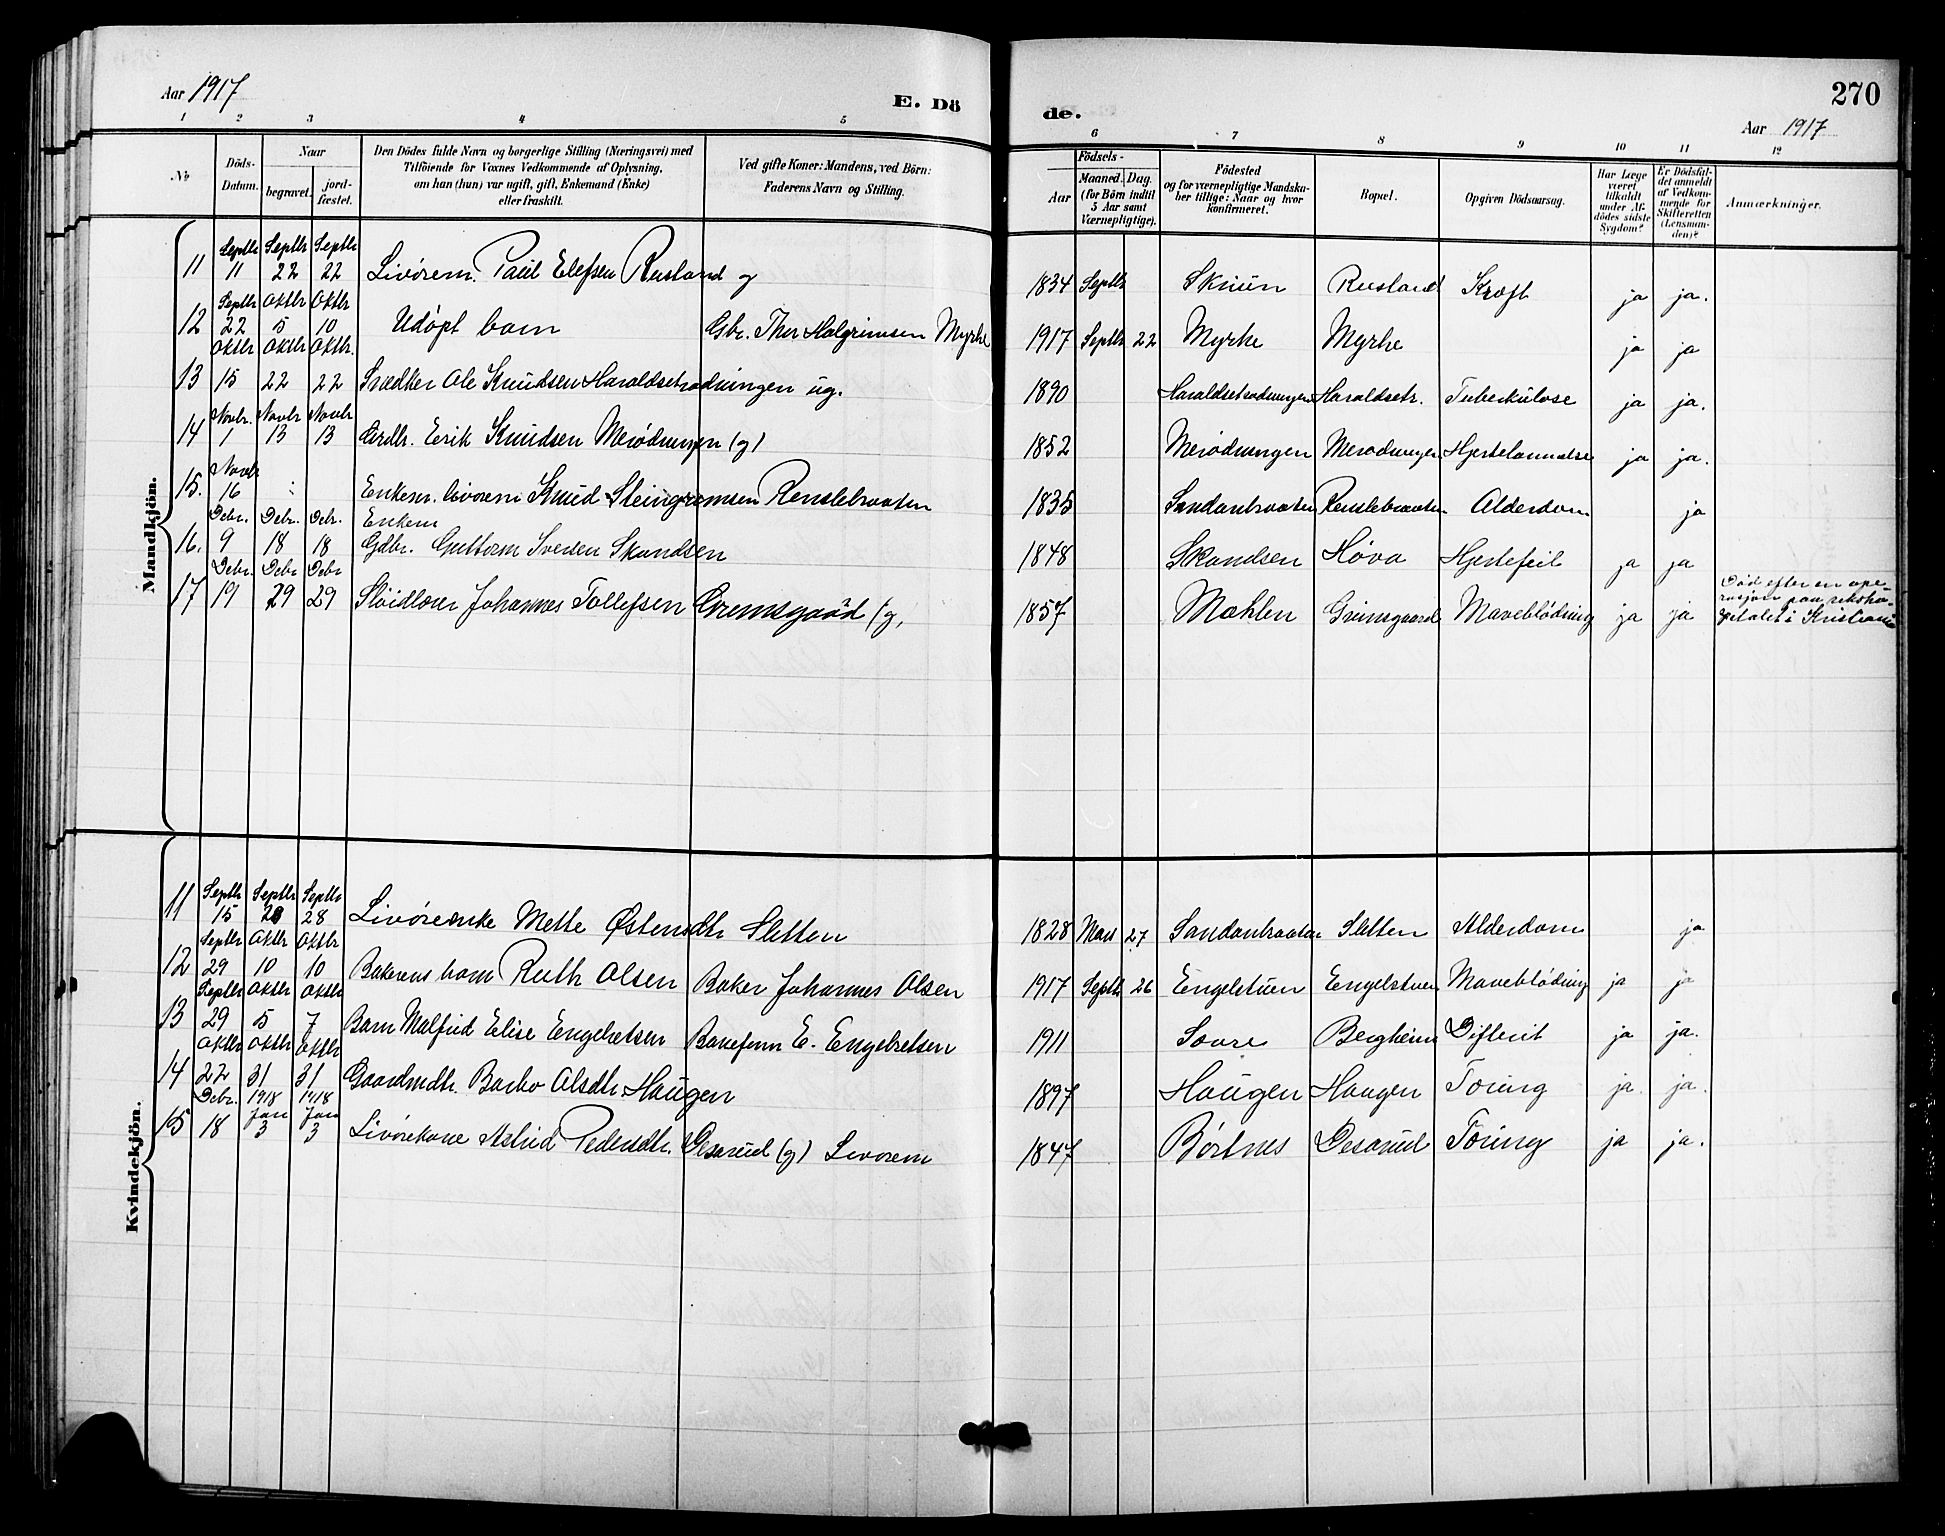 Aar 1917
E. Dö
de.
270
Aar 1917
1 2 3 4 5 6 7 8 9 10 11 12
No
Döds-Datum.
Naar
begravet.
jord-fæstet.
Den Dödes fulde Navn og borgerlige Stilling (Næringsvei) med
Tilföiende for Voxnes Vedkommende af Oplysning,
om han (hun) var ugift, gift, Enkemand (Enke)
eller fraskilt.
Ved gifte Koner: Mandens, ved Börn:
Faderens Navn og Stilling.
Födsels-
Aar
Maaned. Dag.
(for Börn indtil
5 Aar samt
Værnepligtige).
Födested
og for værnepligtige Mandska-
ber tillige: Naar og hvor
konfirmeret.
Bopæl.
Opgiven Dödsaarsag.
Har Læge
været
tilkaldt
under Af-
dödes sidste
Sygdom?
Er Dödsfal-
det anmeldt
af Vedkom-
mende for
Skifteretten
(Lensman-
den)?
Anmærkninger.
Mandkjön.
11 Septbr 11 Septbr 22 Septbr 22 Livörem. Paul Elefsen Rusland g 1834 Septbr Skuun Rusland Kræft ja ja.
12 Septbr 22 Oktbr 5 Oktbr 10 Udöpt barn Gbr. Thor Halgrimsen Myrhe 1917 Septbr 22 Myrke Myrhe ja ja
13 Oktbr 15 Oktbr 22 Oktbr. 22 Snedker Ole Knudsen Haraldsetrodningen ug. 1890 Haraldsetrodningen Haraldsetr. Tuberkulose ja ja.
14 Novbr. 1 Novbr 13 Novbr 13 Erik Knudsen Merödningen (g) 1852 Merödningen Merodningen ja ja.
15. Novbr 16 Enkem. livörem Knud Steingrimsen Renslebraaten 1835 Sandanbraaten Renslebraaten Alderdom ja
16. Debr. 9 Debr. 18 Debr. 18 Enkem Gdbr. Guttorm Iversen Skandsen 1848 Skandsen Höva Hjertefeil ja ja
17 Debr. 19 Debr 29 Debr 29 Slöidlærer Johannes Tollefsen Grimsgaard (g, 1857 Mæhlen Grimsgaard Maveblödning ja ja
Död efter en ope-
rasjon paa rikshos-
pitalet i Kristiania
Kvindekjön.
11 Septbr 15 Septbr 28 Septbr 28 Livöreenke Mette Østensdtr Sletten 1828 Mars 27 Sandanbraaten Sletten Alderdom ja
12 Septbr 29 Oktbr 10 Oktbr 10 Bakerens barn Ruth Olsen Baker Johannes Olsen 1917 Septbr 26 Engelstuen Engelstuen Maveblödning ja ja
13 Septbr 29 Oktbr 5 Oktbr 7 Barn Malfrid Elise Engebretsen Baneform E. Engebretsen 1911 Bergheim Difterit ja ja.
14 Oktbr 22 Oktbr 31 Oktbr 31 Gaardmdtr. Barbo Olsdtr Haugen 1897 Haugen Haugen Tæring ja. ja.
15 Debr. 18 1918 Jan 3 1918 Jan 3 Livörekone Astrid Pedersdtr. Desarud (g) Livorem 1847 Börtnes Desarud Tæring ja ja.